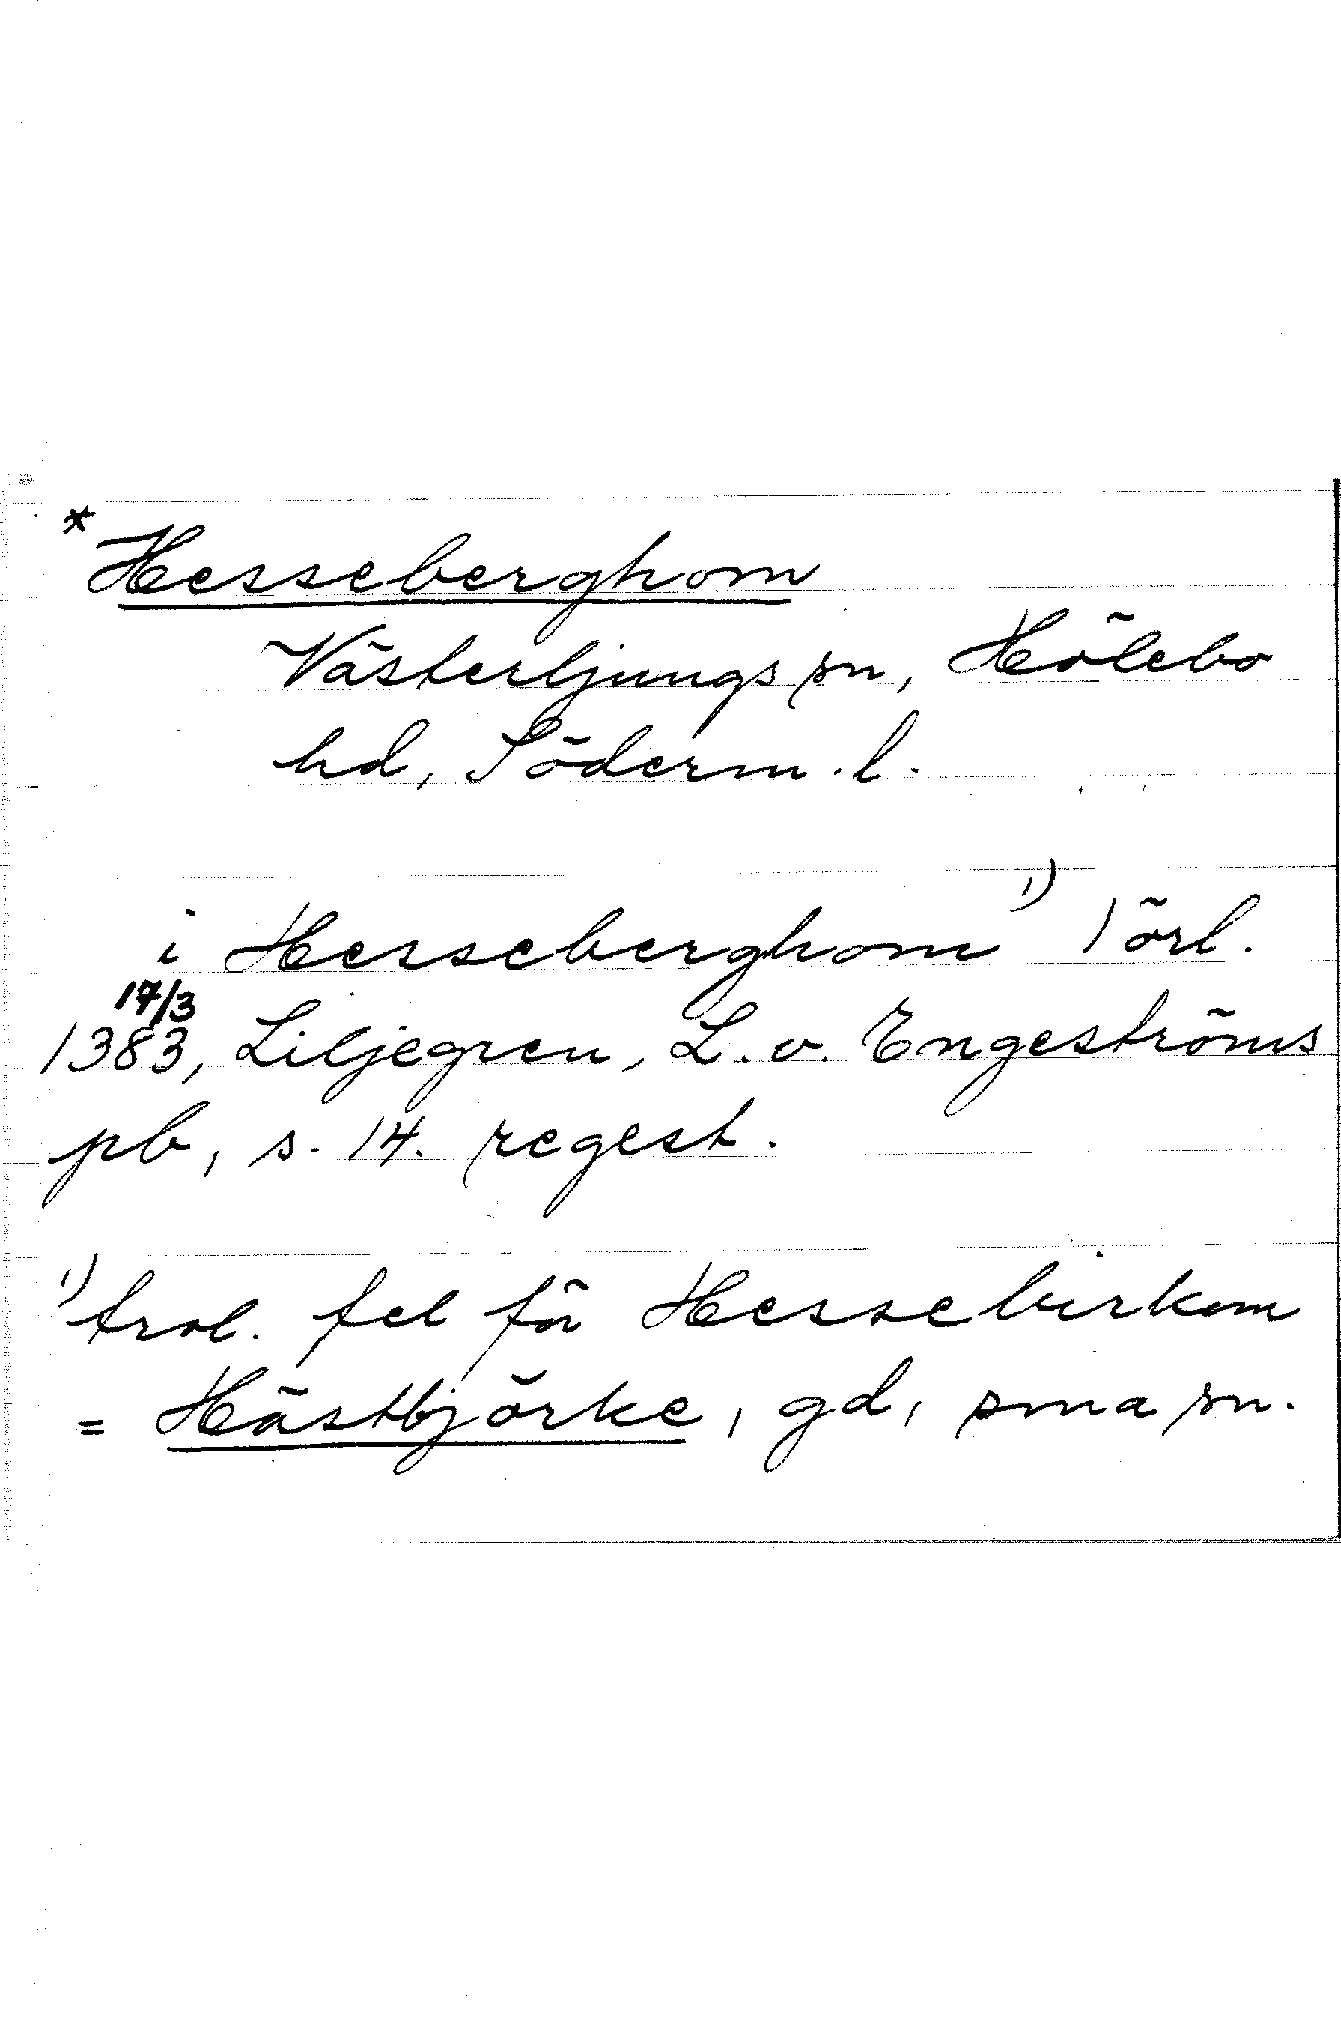 * Hesseberghom
Västerljungs sn, Hölebo
hd, Söderm. l.
i Hesseberghom 1) 1 örl.
17/3
1383, Liljegren, L. v. Engeströms
pb, s. 14. regest.
1) trol. fel för Hessebirkom
= Hästbjörke, gd, sma sn.